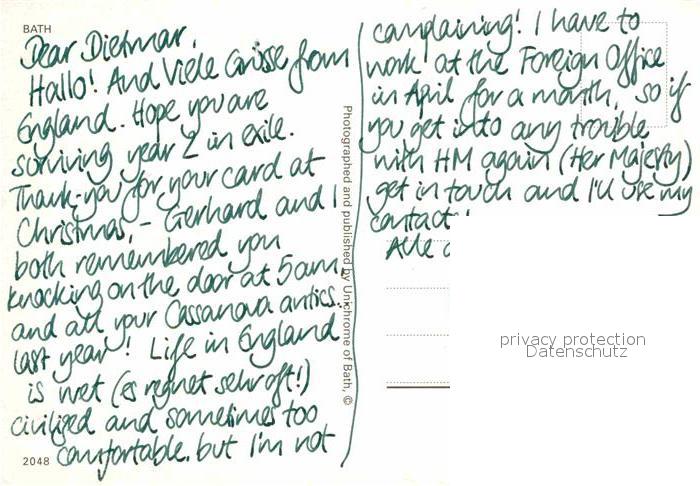 BATH
Dear Dietmar,
Hallo! And Viele Grüsse from
England. Hope you are
surviving year 2 in exile.
Thank-you for your card at
Christmas, – Gerhard and I
both remembered you
knocking on the door at 5am,
and all your Cassanova antics...
last year! Life in England
is wet (es regnet sehr oft!)
civilized and sometimes too
comfortable, but I'm not
2048
Photographed and published by Unichrome of Bath, ©
complaining! I have to
work at the Foreign Office
in April for a month, so if
you get into any trouble
with HM again (Her Majesty)
get in touch and I'll use my
contact
Alle
privacy protection
Datenschutz